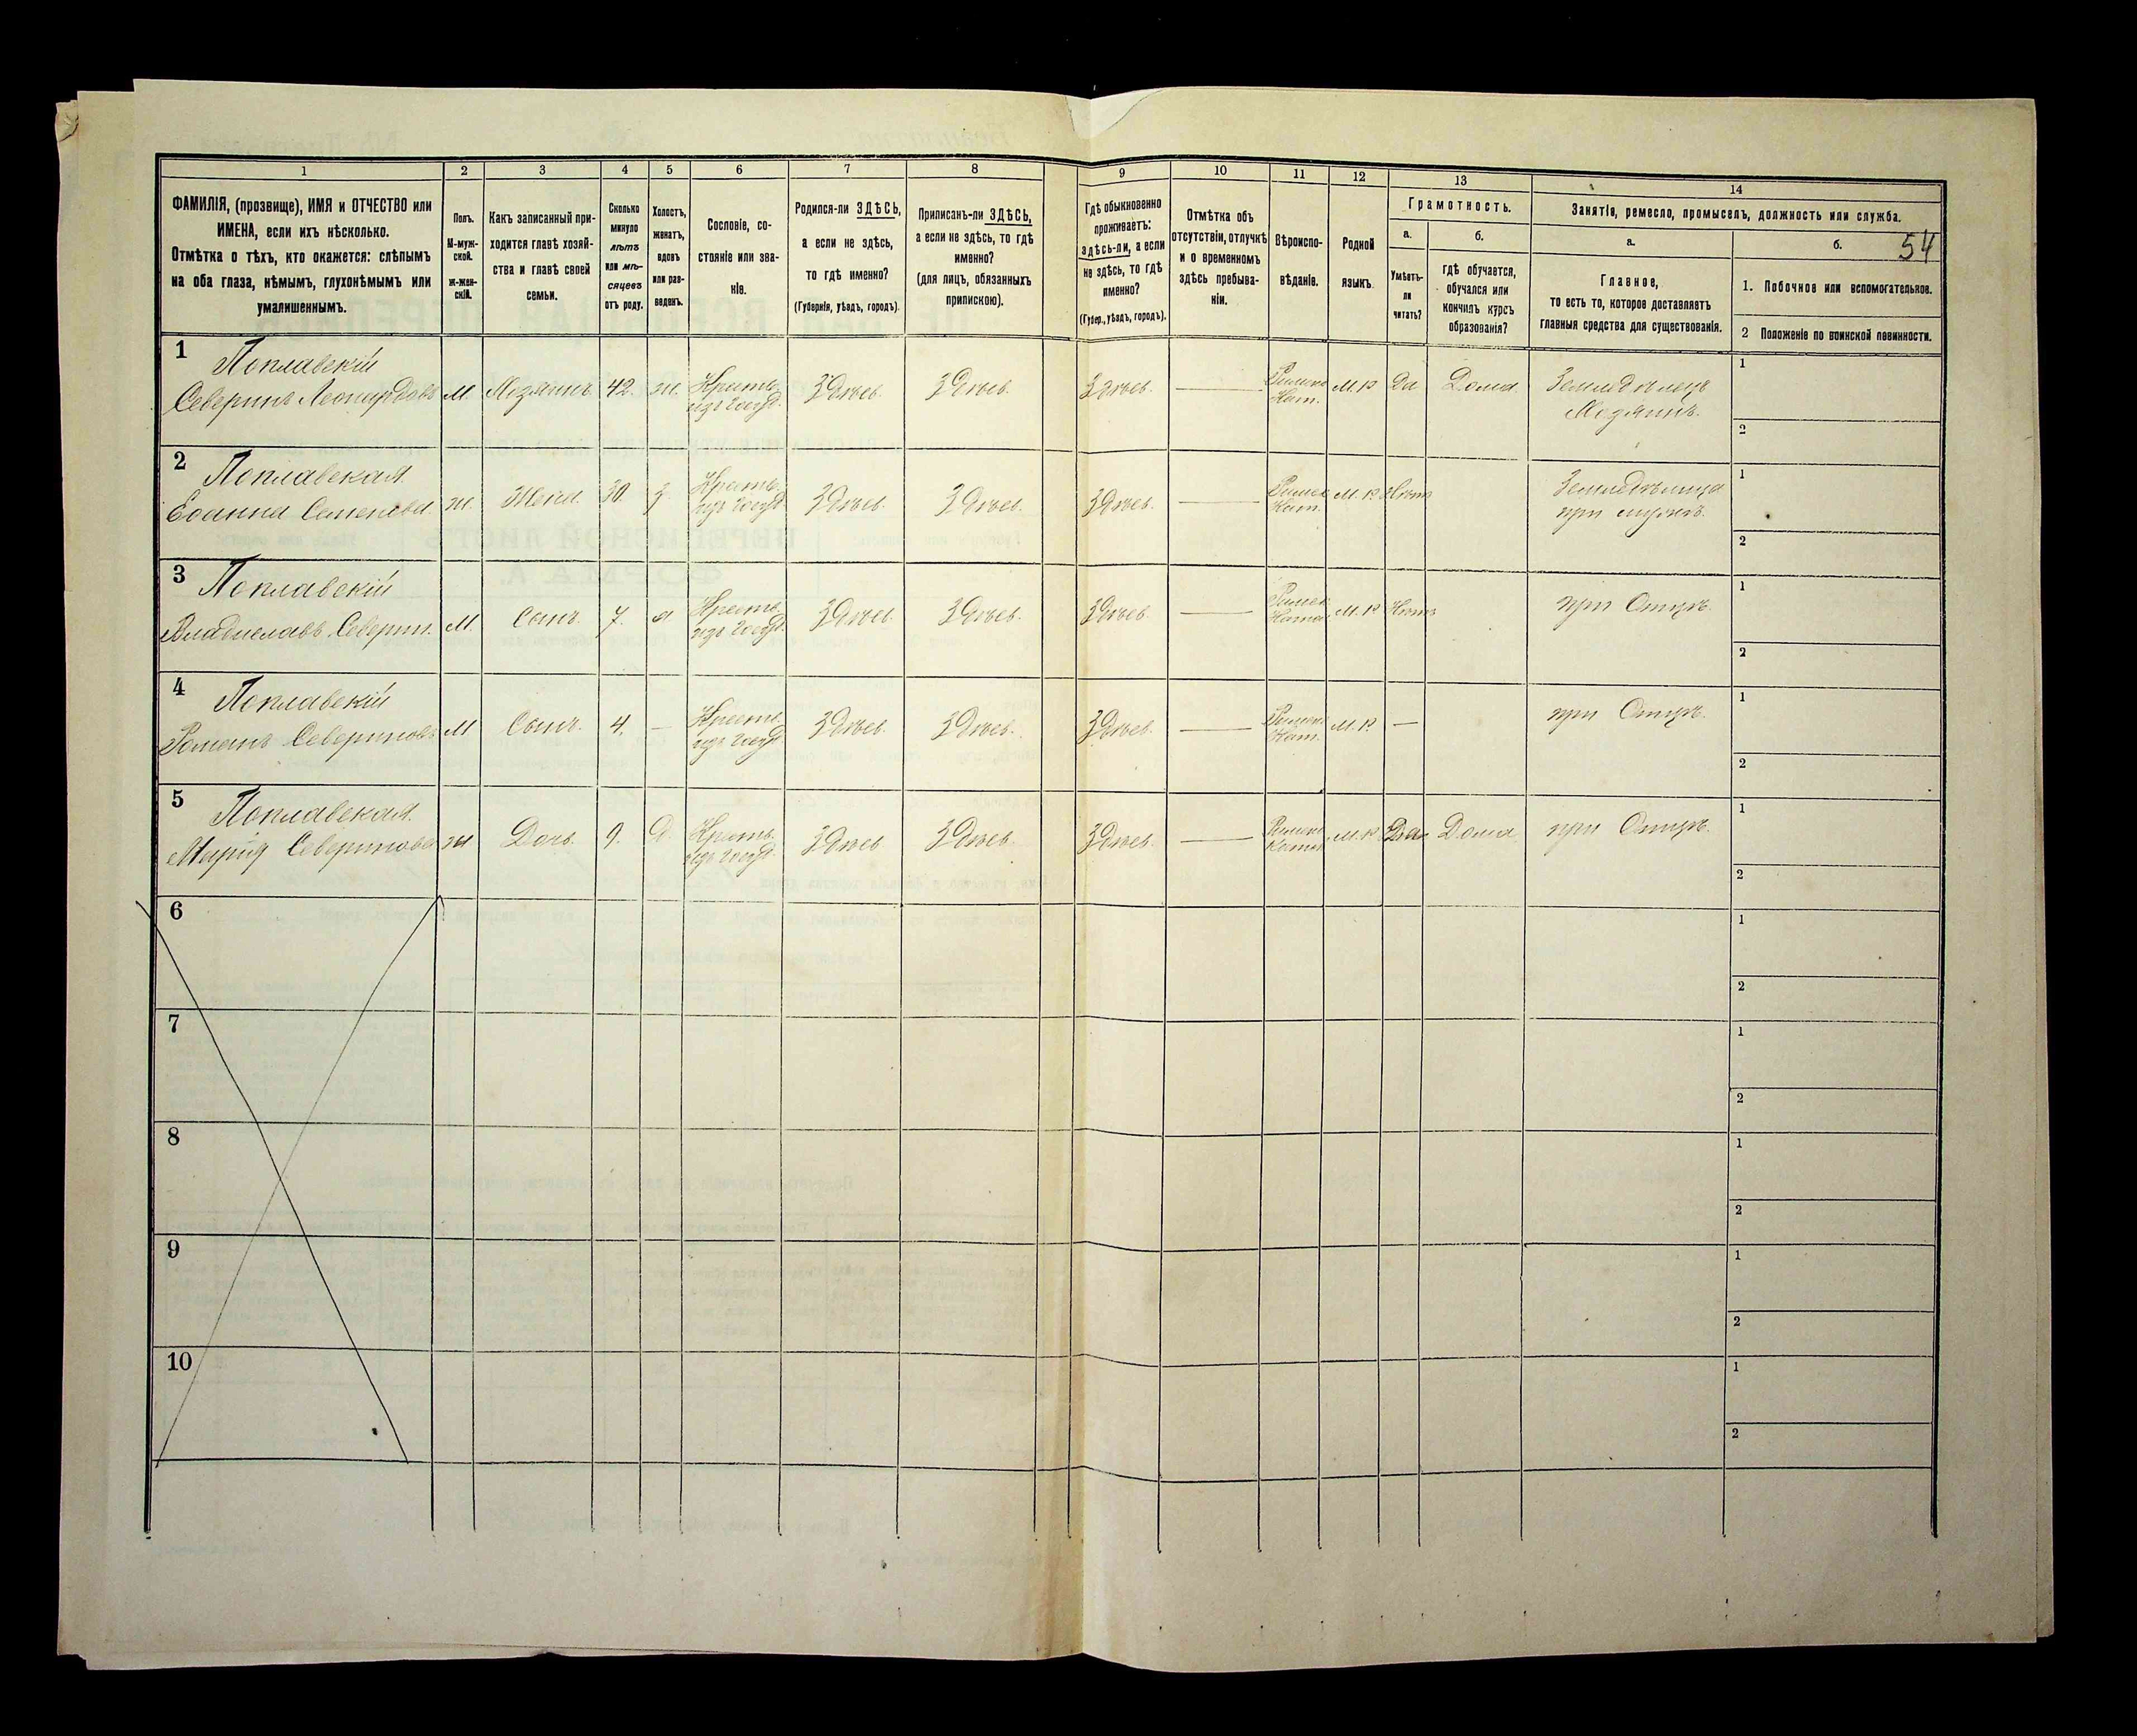 1 2 3 4 5 6 7 8 9 10 11 12 13 14
ФАМИЛІЯ, (прозвище), ИМЯ и ОТЧЕСТВО или
ИМЕНА, если ихъ нѣсколько.
Отмѣтка о тѣхъ, кто окажется: слѣпымъ
на оба глаза, нѣмымъ, глухонѣмымъ или
умалишеннымъ.
Полъ.
М-муж-
ской.
ж-жен-
скій.
Какъ записанный при-
ходится главѣ хозяй-
ства и главѣ своей
семьи.
Сколько
минуло
лѣтъ
или мѣ-
сяцевъ
отъ роду.
Холостъ,
женатъ,
вдовъ
или раз-
веденъ.
Сословіе, со-
стояніе или зва-
ніе.
Родился-ли ЗДѢСЬ,
а если не здѣсь,
то гдѣ именно?
(Губернія, уѣздъ, городъ).
Приписанъ-ли ЗДѢСЬ,
а если не здѣсь, то гдѣ
именно?
(для лицъ, обязанныхъ
припискою).
Гдѣ обыкновенно
проживаетъ:
здѣсь-ли, а если
не здѣсь, то гдѣ
именно?
(Губер., уѣздъ, городъ).
Отмѣтка объ
отсутствіи, отлучкѣ
и о временномъ
здѣсь пребыва-
ніи.
Вѣроиспо-
вѣданіе.
Родной
языкъ.
Грамотность.
а.
Умѣетъ-
ли
читать?
б.
гдѣ обучается,
обучался или
кончилъ курсъ
образованія?
Занятіе, ремесло, промыселъ, должность или служба.
а.
Главное,
то есть то, которое доставляетъ
главныя средства для существованія.
б.
54
1. Побочное или вспомогательное.
2 Положеніе по воинской повинности.
1
Поплавскій
Северинъ Леонардовъ
М.
Хозяинъ
42.
ж.
Крестъ.
изъ госуд.
Здѣсь.
Здѣсь.
Здѣсь.
Римско
Кат.
да
Дома.
Земледѣлецъ
Хозяинъ.
1
2
2
Поплавская
Еванна Семенова
ж.
Жена.
30.
з.
Крестъ.
изъ госуд.
Здѣсь.
Здѣсь.
Здѣсь.
Римск
Кат.
Нѣтъ
Земледѣлица
при мужѣ.
1
2
3
Поплавскій
Владиславъ Северин.
М.
Сынъ.
7.
Крестъ.
изъ госуд.
Здѣсь
Здѣсь.
Здѣсь.
Римск
Нѣтъ
при Отцѣ.
1
2
4
Поплавскій
Романъ Севериновъ
М
Сынъ.
4.
—
Крестъ.
изъ госуд.
Здѣсь.
Здѣсь.
Здѣсь.
Римско
Кат.
—
при Отцѣ.
1
2
5
Поплавская
Марія Северинова
ж
Дочь.
9.
Д.
Крестъ.
изъ госуд.
Здѣсь
Здѣсь.
Здѣсь.
Римско
Да
Дома
при Отцѣ.
1
2
6
1
2
7
1
2
8
1
2
9
1
2
10
1
2